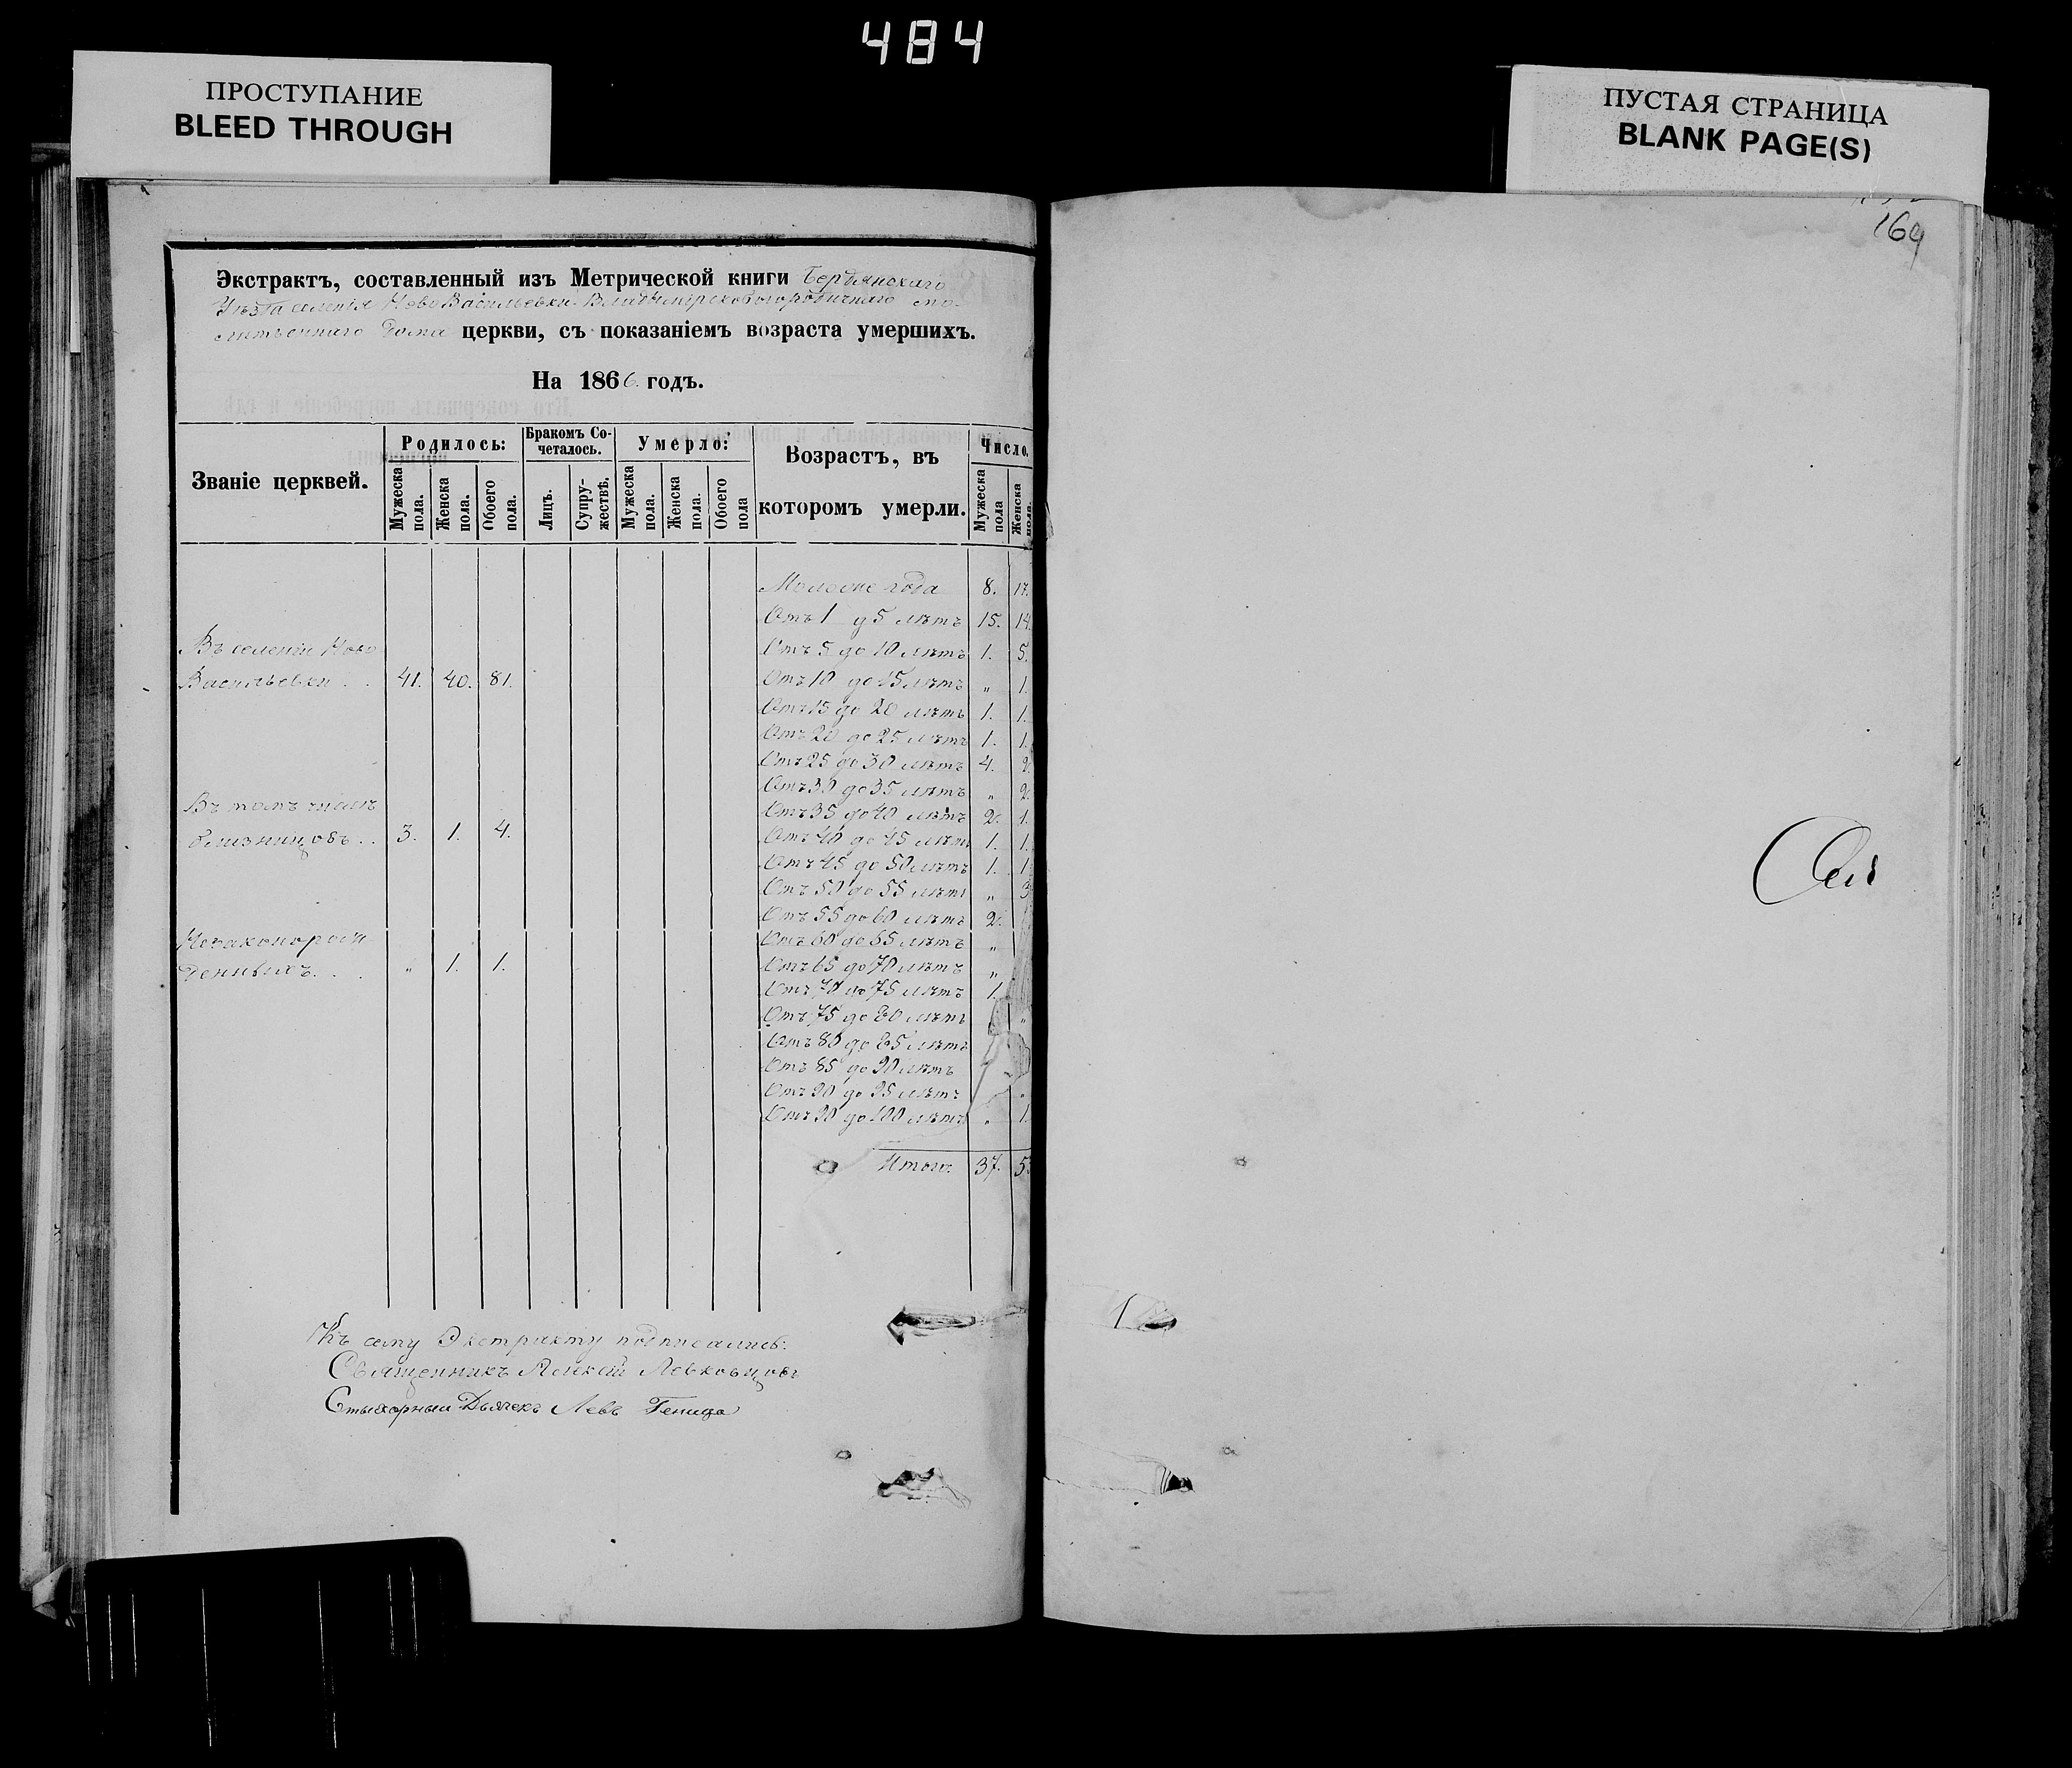 484
ПРОСТУПАНИЕ
BLEED THROUGH
ПУСТАЯ СТРАНИЦА
BLANK PAGE(S)
169
Экстрактъ, составленный изъ Метрической книги Бердянскаго
Уѣзда селенія НовоВасильевки Владымірскобогородичнаго мо-
литвеннаго Дома церкви, съ показаніемъ возраста умершихъ.
На 1866. годъ.
Званіе церквей.
Родилось:
Бракомъ Со-
четалось.
Умерло:
Возрастъ, въ
которомъ умерли.
Число.
Мужеска пола.
Женска пола.
Обоего пола.
Лицъ.
Супру-жествъ.
Мужеска пола.
Женска пола.
Обоего пола
Мужеска пола
Женска пола.
Молодые года 8. 17.
Отъ 1 д 5 лѣтъ 15. 14.
Въ селеніи Ново Отъ 5 до 10 лѣтъ 1. 5.
Васильевки . . 41. 40. 81. Отъ 10 до 15 лѣтъ „ 1.
Отъ 15 до 20 лѣтъ 1. 1.
Отъ 20 до 25 лѣтъ 1. 1.
Отъ 25 до 30 лѣтъ 4. 2.
Отъ 30 до 35 лѣтъ „ 2.
Въ томъ числѣ Отъ 35 до 40 лѣтъ 2. 1.
близницовъ . . 3. 1. 4. Отъ 40 до 45 лѣтъ 1. 1.
Отъ 45 до 50 лѣтъ 1. 1
Отъ 50 до 55 лѣтъ „ 3
Отъ 55 до 60 лѣтъ 2.
Незаконорож Отъ 60 до 65 лѣтъ „
денныхъ. . . „ 1. 1. Отъ 65 до 70 лѣтъ „
Отъ 70 до 75 лѣтъ 1.
Отъ 75 до 80 лѣтъ „
Отъ 80 до 85 лѣтъ
Отъ 85 до 90 лѣтъ
Отъ 90 до 95 лѣтъ „
Отъ 90 до 100 лѣтъ „ 1.
Итого: 37. 53
Къ сему Экстракту подписались:
Священникъ Алексій Левковцовъ
Стыхарный Дьячекъ Левъ Геница